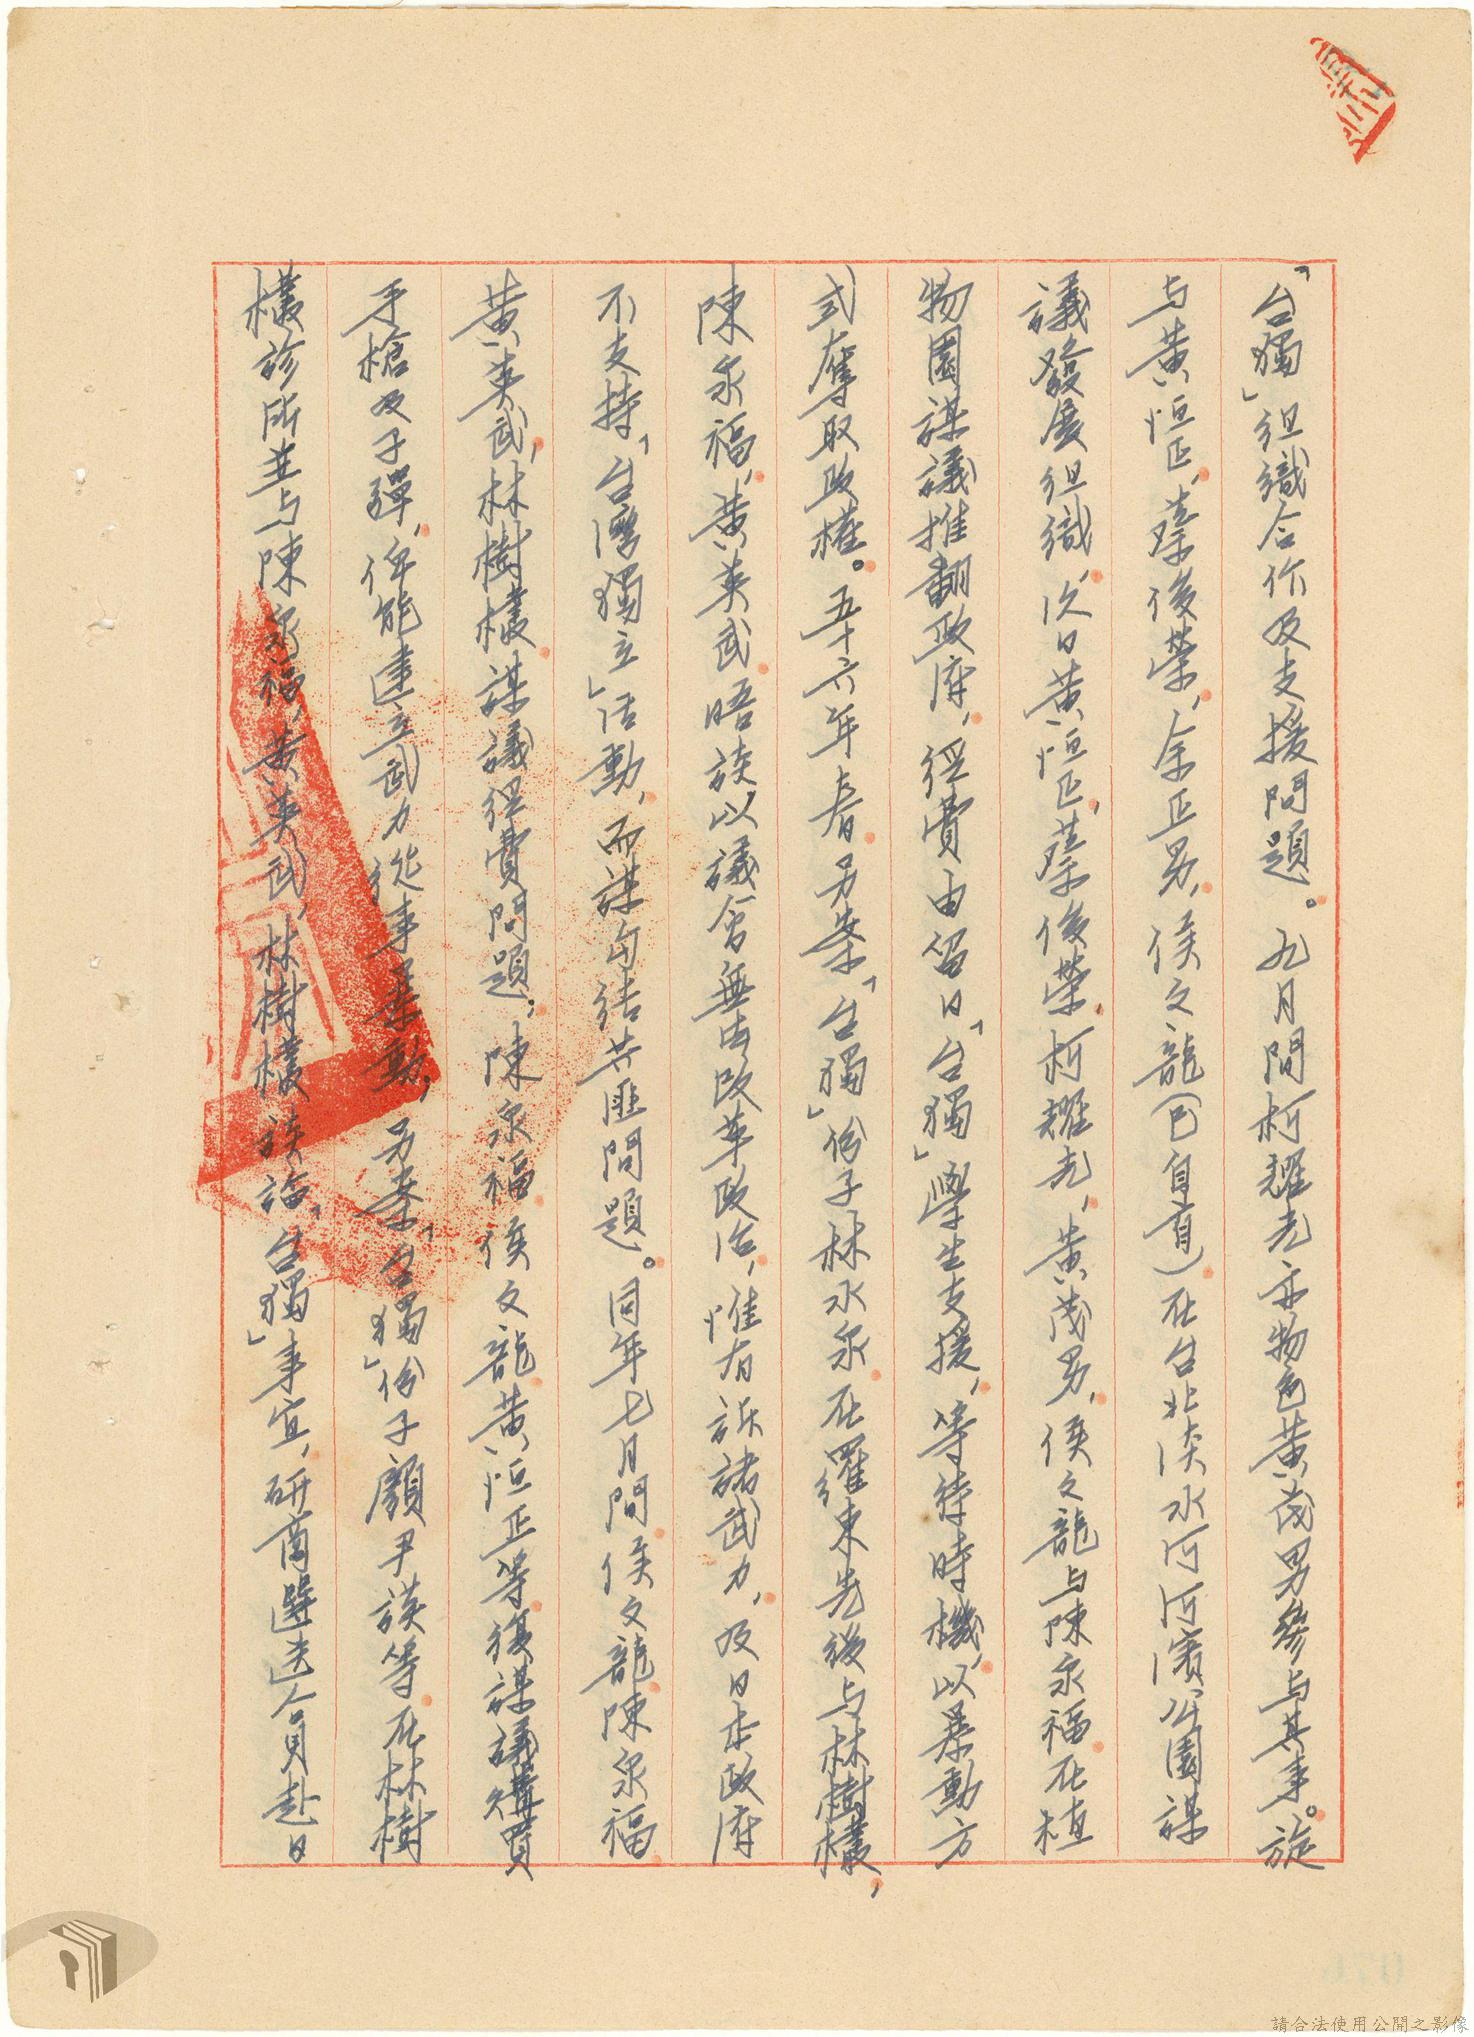 「台獨」組織合作及支援問題。九月間柯耀光亦物色黃茂男參与其事。旋
与黃恒正、蔡俊榮、余正男、侯文龍(已自首)在台北淡水河河濱公園謀
議發展組織、次日黃恒正、蔡俊榮柯耀光、黃茂男、侯文龍与陳泉福在植
物園謀議推翻政府，經費由留日「台獨」學生支援，等待時機、以暴動方
式奪取政權。五十六年春另案「台獨」份子林水泉在羅東先後与林樹欉，
陳泉福、黃英武晤談、以議會無由改革政治，惟有訴諸武力，及日本政府
不支持「台灣獨立」活動，而謀勾結共匪問題。同年七月間侯文龍陳泉福
黃英武、林樹欉謀議經費問題；陳泉福侯文龍黃恒正等復謀議購買
手槍及子彈，俾能建立武力從事暴動，另案「台獨」份子顏尹謨等在林樹
欉診所並与陳泉福、黃英武、林樹欉談論「台獨」事宜，研商選送人員赴日
請合法使用公開之影像